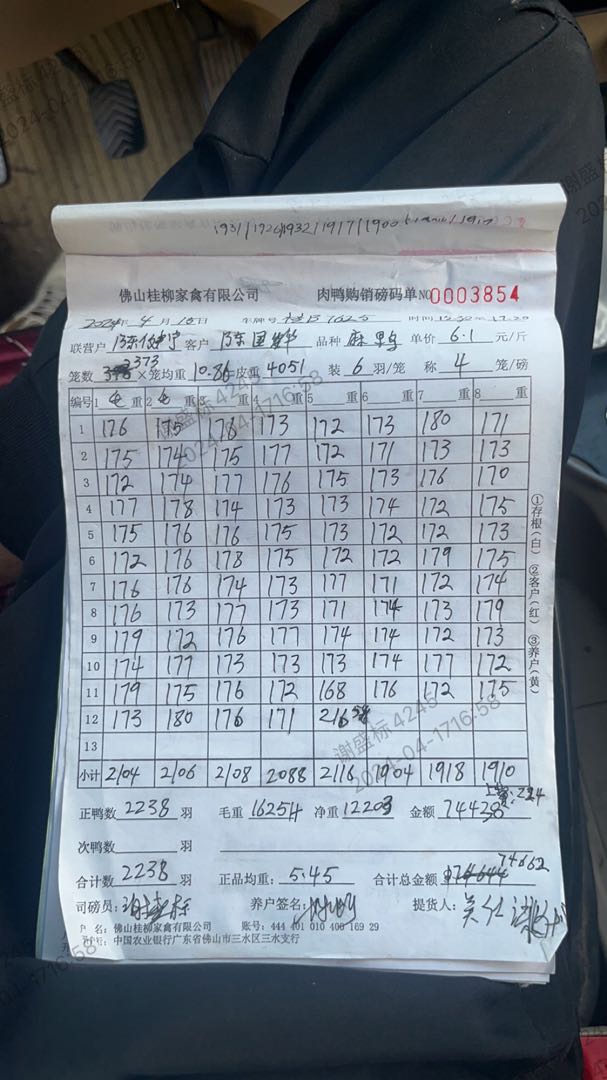 1931/1926/1932/1917/1900
佛山桂柳家禽有限公司 肉鸭购销磅码单NO0003854
2024年4月18日 1625 时间
联营户 陈 客户 陈国华 品种 麻鸭 单价 6.1 元/斤
笼数 373 ×笼均重 10.86 皮重 4051 装 6 羽/笼 称 4 笼/磅
编号 1 重 2 重 3 重 4 重 5 重 6 重 7 重 8 重
1 176 175 178 173 172 173 180 171
2 175 174 175 177 172 171 173 173
3 172 174 177 176 175 173 176 170
4 177 178 174 173 173 174 172 175
5 175 176 176 175 173 172 172 173
6 172 176 178 175 172 172 179 175
7 176 176 174 173 177 171 172 174
8 176 173 177 173 171 174 173 179
9 179 172 176 177 174 174 172 173
10 174 177 173 173 173 174 177 172
11 179 175 176 172 168 176 172 175
12 173 180 176 171 216
13
小计 2104 2106 2108 2088 2116 1904 1918 1910
224
正鸭数 2238 羽 毛重 16254 净重 12203 金额 74438
次鸭数 羽
74662
合计数 2238 羽 正品均重: 5.45 合计总金额
司磅员: 谢盛标 养户签名: 提货人:
户 名: 佛山桂柳家禽有限公司 账号: 444 401 010 400 169 29
中国农业银行广东省佛山市三水区三水支行
①存根(白) ②客户(红) ③养户(黄)
谢盛标 4245
2024-04-1716:58